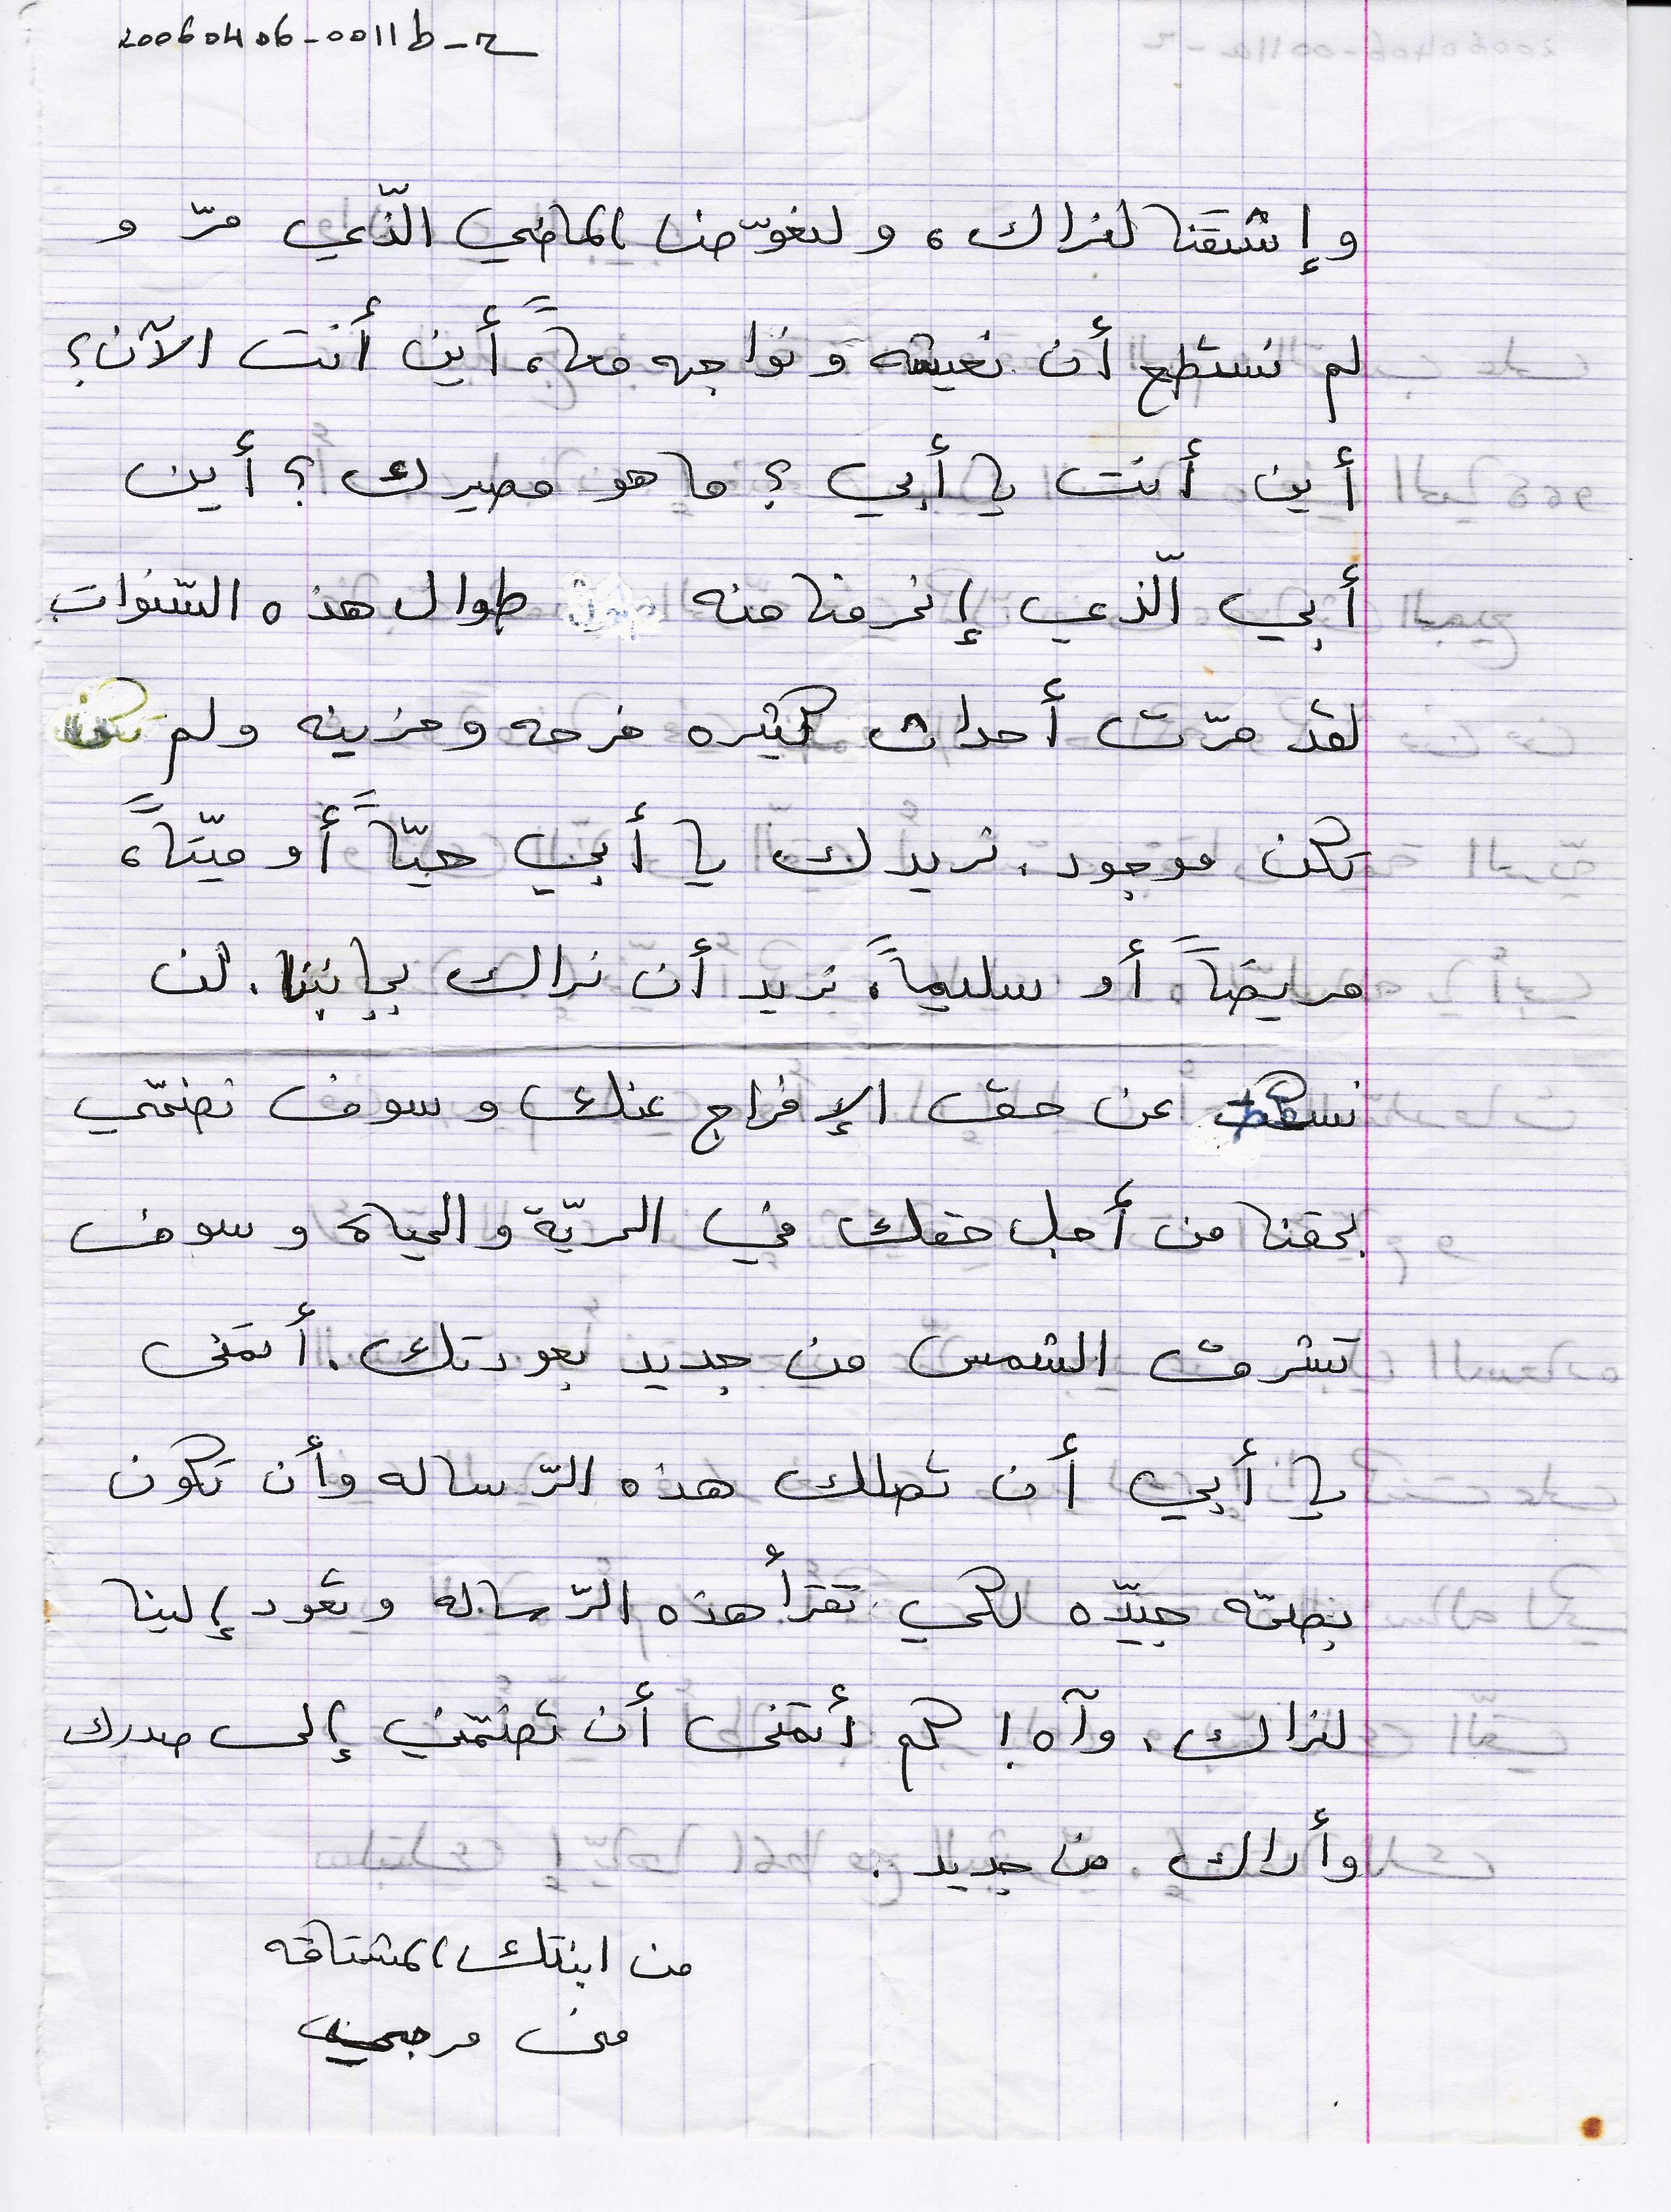 20060406-0011b-r
وإشتقنا لنراك، ولنعوّضنا الماضي الّذي مرّ و
لم نستطع أن نعيشه ونواجه معاً، أين أنت الآن؟
أين أنت يا أبي؟ ما هو مصيرك؟ أين
أبي الّذي إنحرمنا منه طوال هذه السّنوات
لقد مرّت أحداث كثيره فرحه وحزينه ولم
تكن موجود. نريدك يا أبي حيّاً أو ميّتاً،
مريضاً أو سليماً، نريد أن نراك بجانبنا. لن
نسكت عن حق الإفراج عنك وسوف نضحّي
بحقنا من أجل حقك في الحريّة والحياة وسوف
تشرق الشمس من جديد بعودتك. أتمنى
يا أبي أن تصلك هذه الرّساله وأن تكون
بصحّه جيّده لكي تقرأ هذه الرّساله وتعود إلينا
لنراك، وآه! كم أتمنى أن تضمّني إلى صدرك
وأراك من جديد.
من ابنتك المشتاقه
منى مرجي